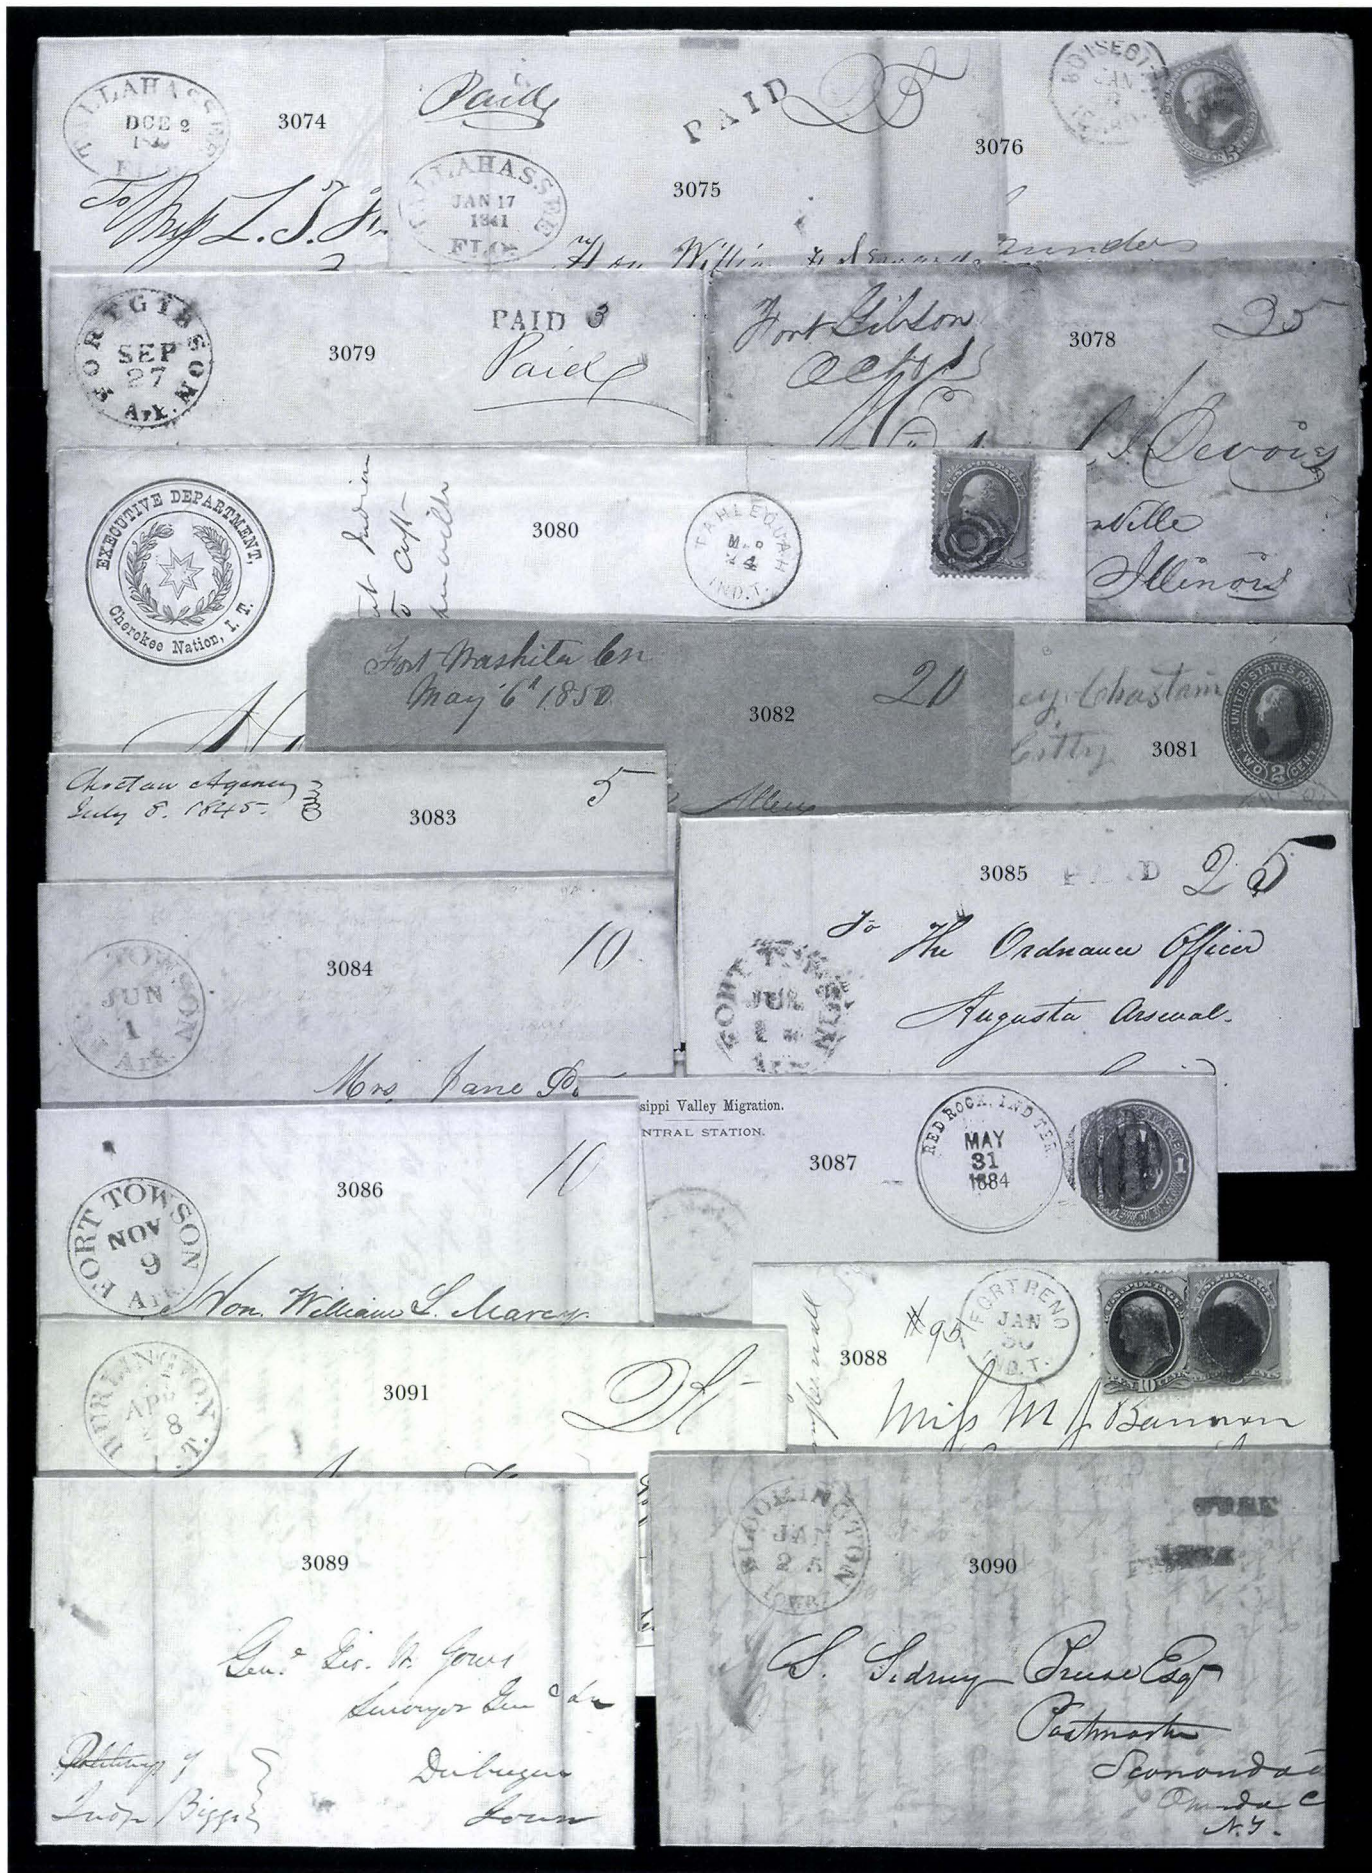 TALLAHASSEE
DCE 2
FLO.
3074
To
Miss L. S.
Paid
PAID
TALLAHASSEE
JAN 17
1841
FLO.
3075
Hon
3076
BOISE
JAN
FORT GIBSON
SEP
27
Ark.
3079
PAID 3
Paid
Fort Gibson
Oct
3078
25
ville
Illinois
EXECUTIVE DEPARTMENT,
Cherokee Nation, I. T.
3080
TAHLEQUAH
24
IND. T.
Fort Washita Cn
May 6th 1850
3082
20
Allen
ey. Chastain
3081
UNITED STATES POSTAGE
TWO 2 CENTS
Choctaw Agency
July 8. 1845.
3083
5
3085
PAID 25
To The Ordnance Officer
Augusta Arsenal.
FORT TOWSON
JUN
Ark.
TOWSON
JUN
1
Ark.
3084
10
Mrs. Jane
sippi Valley Migration.
NTRAL STATION.
3087
RED ROCK, IND TER.
MAY
31
1884
1
FORT TOWSON
NOV
9
Ark.
3086
10
Hon. William L. Marcy.
3088
#95
FORT RENO
JAN
30
IND. T.
10
Miss M J Bannon
BURLINGTON
AP
8
3091
3089
Surveyor Genl
Dubuque
Iowa
BLOOMINGTON
JAN
25
IOWA
3090
S. Sidney Breese Esqr
Postmaster
N.Y.